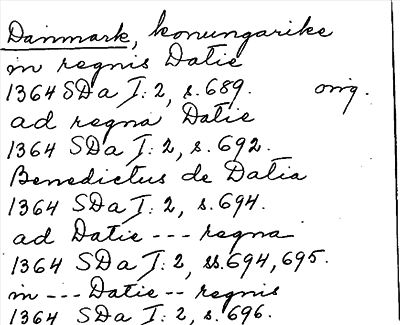 Danmark, konungarike
in regnis Datie
1364 SDa I: 2, s. 689. orig.
ad regna Datie
1364 SDa I: 2, s. 692.
Benedictus de Datia
1364 SDa I: 2, s. 694.
ad Datie --- regna
1364 SDa I: 2, ss. 694, 695.
in --- Datie -- regnis
1364 SDa I: 2, s. 696.